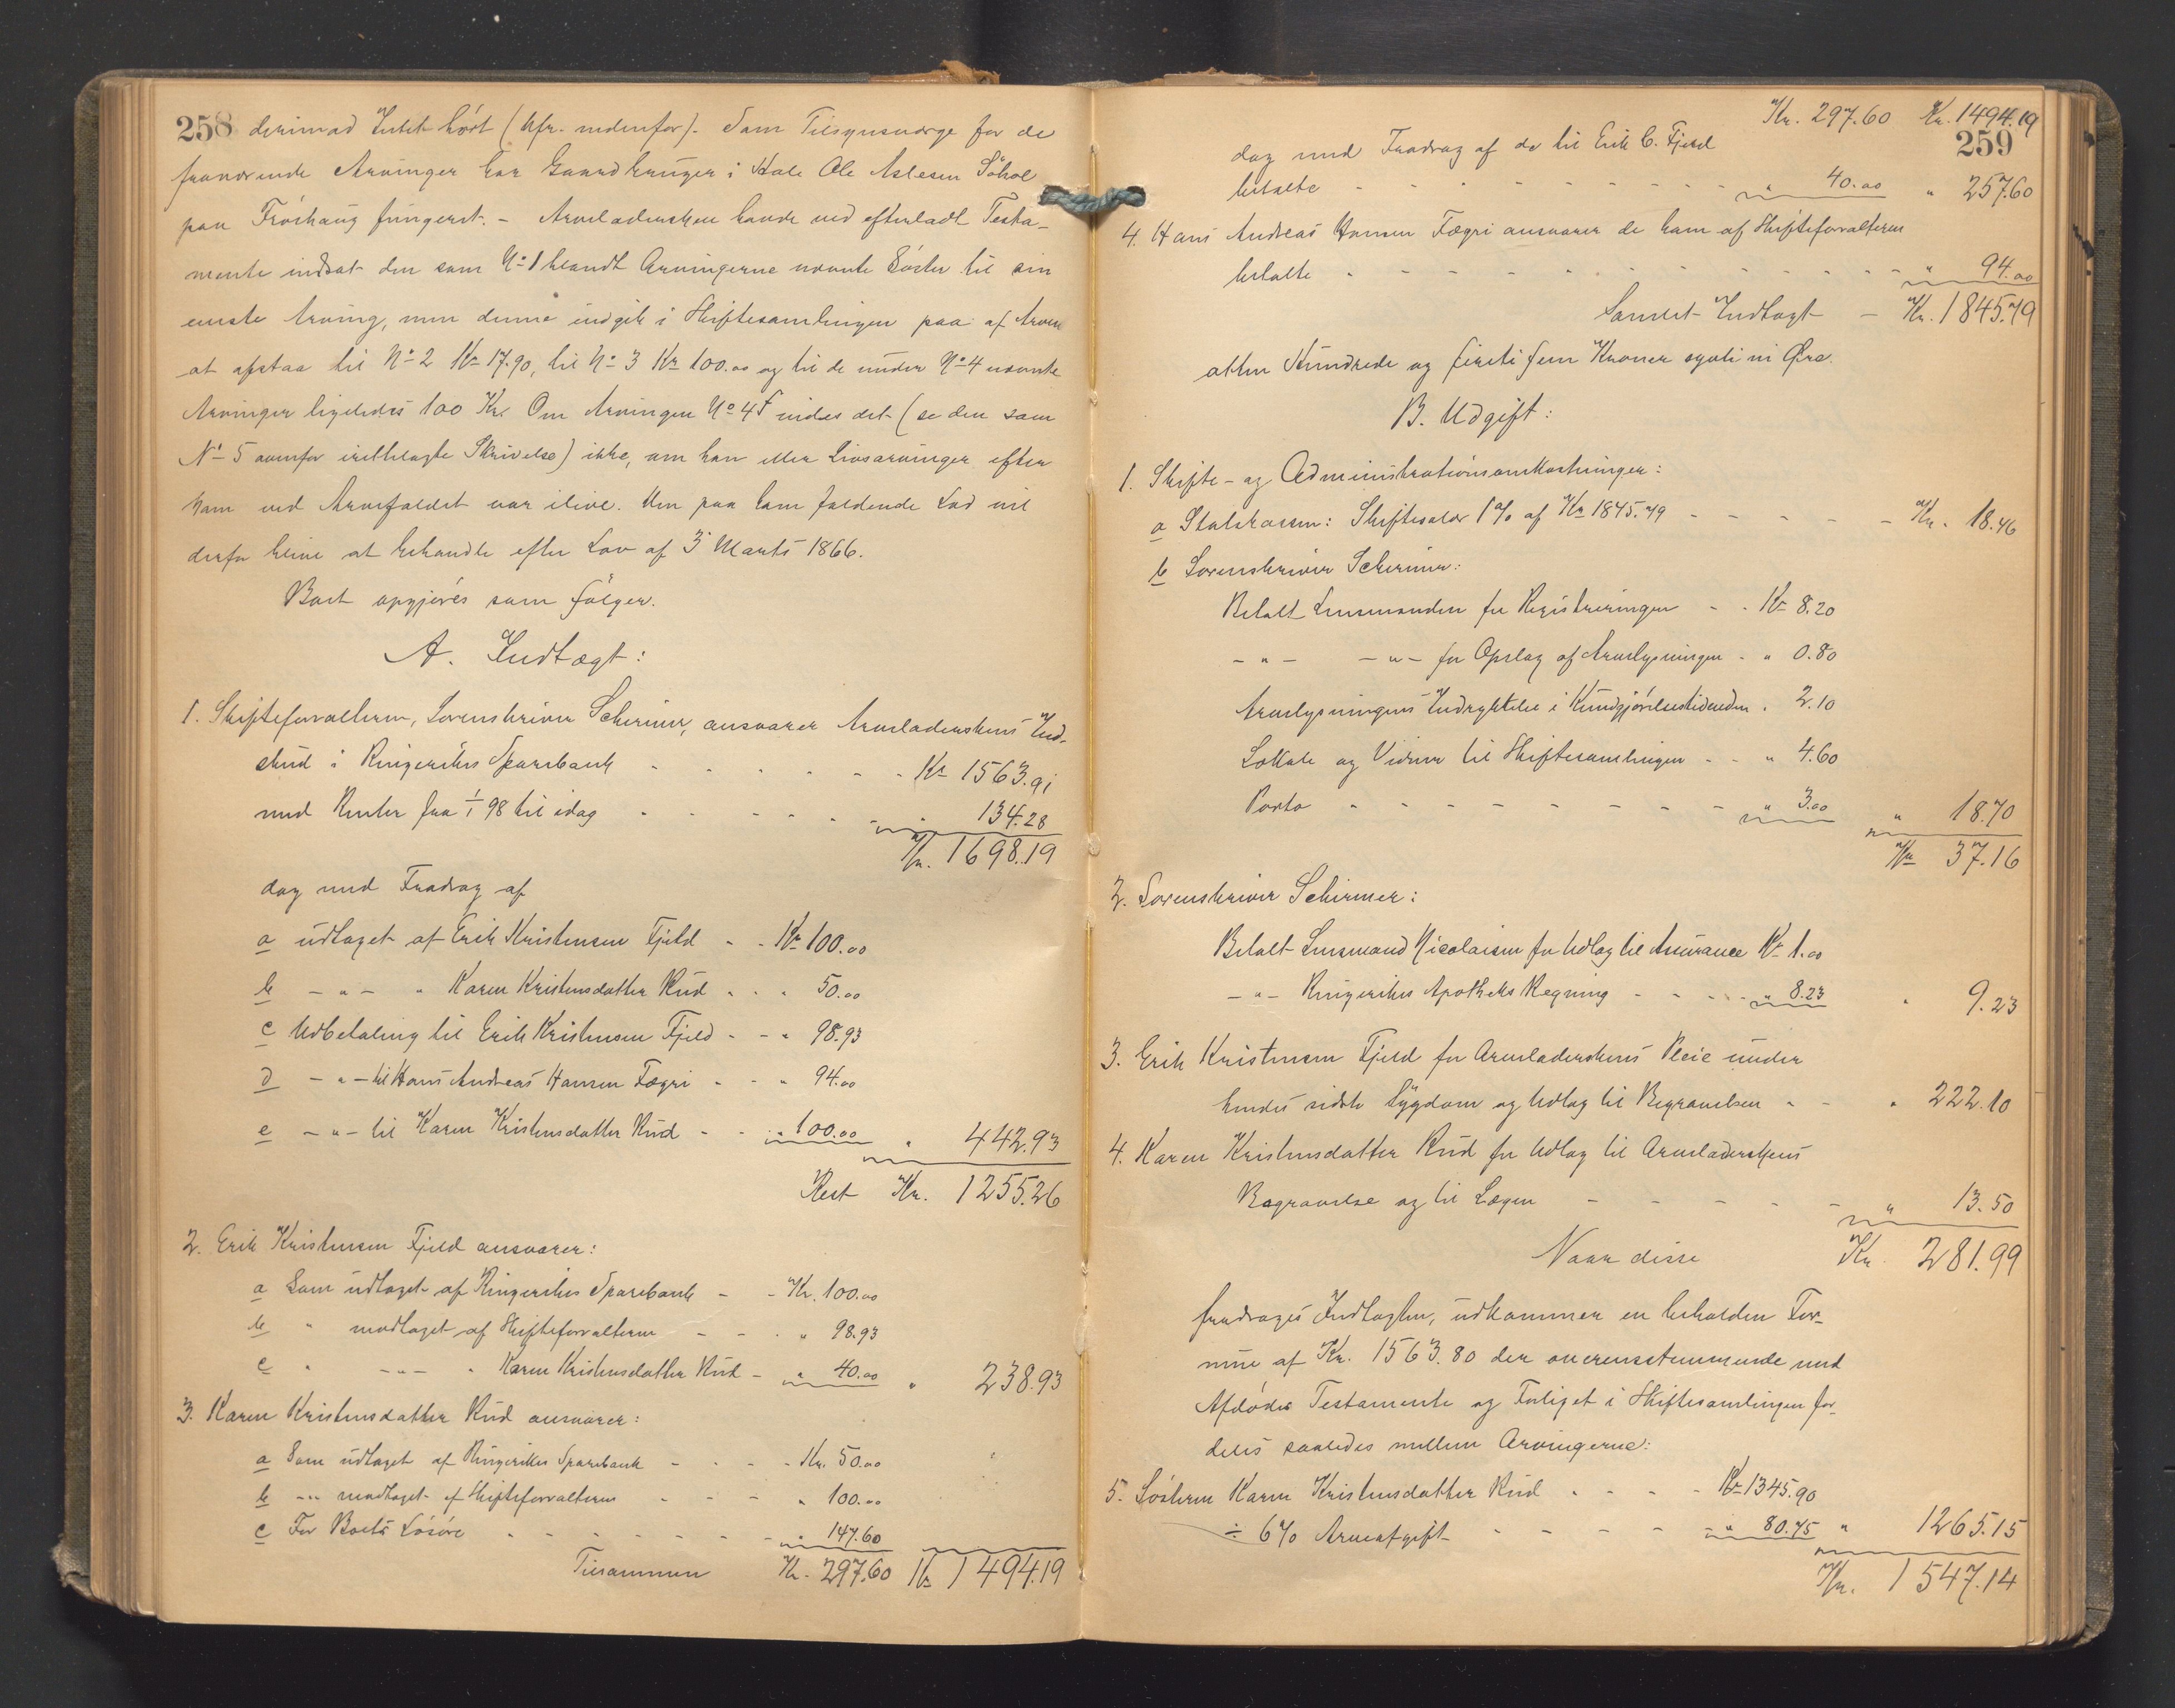 258 derimod Intet hört (kfr. nedenfor). Som Tilsynsværge for de
fraværende Arvinger har Gaardbruger i Hole Ole Aslesen Söhol
paa Fröshaug fungeret. - Arveladersken havde ved efterladt Testa-
mente indsat den som No 1 blandt Arvingerne nævnte Söster til sin
eneste Arving, men denne indgik i Skiftesamlingen paa af Arven
at afstaa til No 2 Kr 17.90, til No 3 Kr 100.00 og til de under No 4 nævnte
Arvinger ligeledes 100 Kr. Om Arvingen No 4 F vides det (se den som
No 5 ovenfor irettelagte Skrivelse) ikke, om han eller Livsarvinger efter
ham ved Arvefaldet var ilive. Den paa ham faldende Lod vil
derfor blive at behandle efter Lov af 3 Marts 1866.
Boet opgjöres som fölger.
A. Indtægt:
1. Skifteforvalteren, Sorenskriver Schirmer, ansvarer Arveladerskens Ind-
skud i Ringerikes Sparebank - - - - - Kr 1563.91
med Renter fra 1/1 98 til idag - - - - - " 134.28
Kr. 1698.19
dog med Fradrag af
a udtaget af Erik Kristensen Fjeld - - Kr 100.00
b - " - " Karen Kristensdatter Rud - - " 50.00
c Udbetaling til Erik Kristensen Fjeld - - " 98.93
d - " - til Hans Andreas Hansen Fægri - - " 94.00
e - " - til Karen Kristensdatter Rud - - " 100.00 " 442.93
Rest Kr. 1255.26
2. Erik Kristensen Fjeld ansvarer:
a Som udtaget af Ringerikes Sparebank - - Kr. 100.00
b " modtaget af Skifteforvalteren - - - " 98.93
c " - " - " Karen Kristensdatter Rud - " 40.00 " 238.93
3. Karen Kristensdatter Rud ansvarer:
a Som udtaget af Ringerikes Sparebank - - - Kr. 50.00
b - " - modtaget af Skifteforvalteren - - - " 100.00
c For Boets Lösöre - - - - - - " 147.60
Tilsammen Kr. 297.60 Kr 1494.19
Kr. 297.60 Kr. 1494.19
259
dog med Fradrag af de til Erik C. Fjeld
betalte - - - - - - - - " 40.00 " 257.60
4. Hans Andreas Hansen Fægri ansvarer de ham af Skifteforvalteren
betalte - - - - - - - - - - " 94.00
Samlet Indtægt - Kr. 1845.79
atten Hundrede og firti fem Kroner sytti ni Öre.
B. Udgift:
1. Skifte- og Administrationsomkostninger:
a Statskassen: Skiftesalær 1% af Kr 1845.79 - - - - - Kr. 18.46
b Sorenskriver Schirmer:
Betalt Lensmanden for Registreringen - - Kr 8.20
- " - - " - for Opslag af Arvelysningen - " 0.80
Arvelysningens Indrykkelse i Kundgjörelsestidenden " 2.10
Lokale og Vidner til Skiftesamlingen - - " 4.60
Porto - - - - - - - - " 3.00 " 18.70
Kr 37.16
2. Sorenskriver Schirmer:
Betalt Lensmand Nicolaisen for Udlæg til Assurance Kr 1.00
- " - Ringerikes Apotheks Regning - - - - " 8.23 " 9.23
3. Erik Kristensen Fjeld for Arveladerskens Pleie under
hendes sidste Sygdom og Udlæg til Begravelsen - - " 222.10
4. Karen Kristensdatter Rud for Udlæg til Arveladerskens
Begravelse og til Lægen - - - - - " 13.50
Naar disse Kr. 281.99
fradrages Indtægten, udkommer en beholden For-
mue af Kr. 1563.80 der overensstemmende med
Afdödes Testamente og Forliget i Skiftesamlingen for-
deles saaledes mellem Arvingerne:
5. Sösteren Karen Kristensdatter Rud - - - - Kr 1345.90
÷ 6% Arveafgift - - - - - " 80.75 " 1265.15
Kr. 1547.14